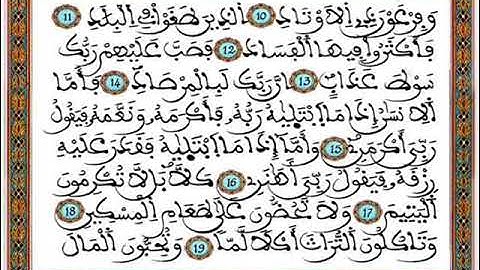 وَفِرْعَوْنَ ذِے اِ۬لَاوْتَادِ 10 اِ۬لذِينَ طَغَوْاْ فِے اِ۬لْبِلَٰدِ 11
فَأَكْثَرُواْ فِيهَا اَ۬لْفَسَادَ 12 فَصَبَّ عَلَيْهِمْ رَبُّكَ
سَوْطَ عَذَابٍ 13 اِنَّ رَبَّكَ لَبِالْمِرْصَادِ 14 فَأَمَّا
اَ۬لِانسَٰنُ إِذَا مَا اَ۪بْتَل۪يٰهُ رَبُّهُۥ فَأَكْرَمَهُۥ وَنَعَّمَهُۥ فَيَقُولُ
رَبِّيَ أَكْرَمَنِۦ 15 وَأَمَّا إِذَا مَا اَ۪بْتَل۪يٰهُ فَقَدَرَ عَلَيْهِ
رِزْقَهُۥ فَيَقُولُ رَبِّيَ أَهَٰنَنِۦ 16 كَلَّا بَل لَّا تُكْرِمُونَ
اَ۬لْيَتِيمَ 17 وَلَا تَحُضُّونَ عَلَىٰ طَعَامِ اِ۬لْمِسْكِينِ 18
وَتَاكُلُونَ اَ۬لتُّرَاثَ أَكْلًا لَّمّاً 19 وَتُحِبُّونَ اَ۬لْمَالَ